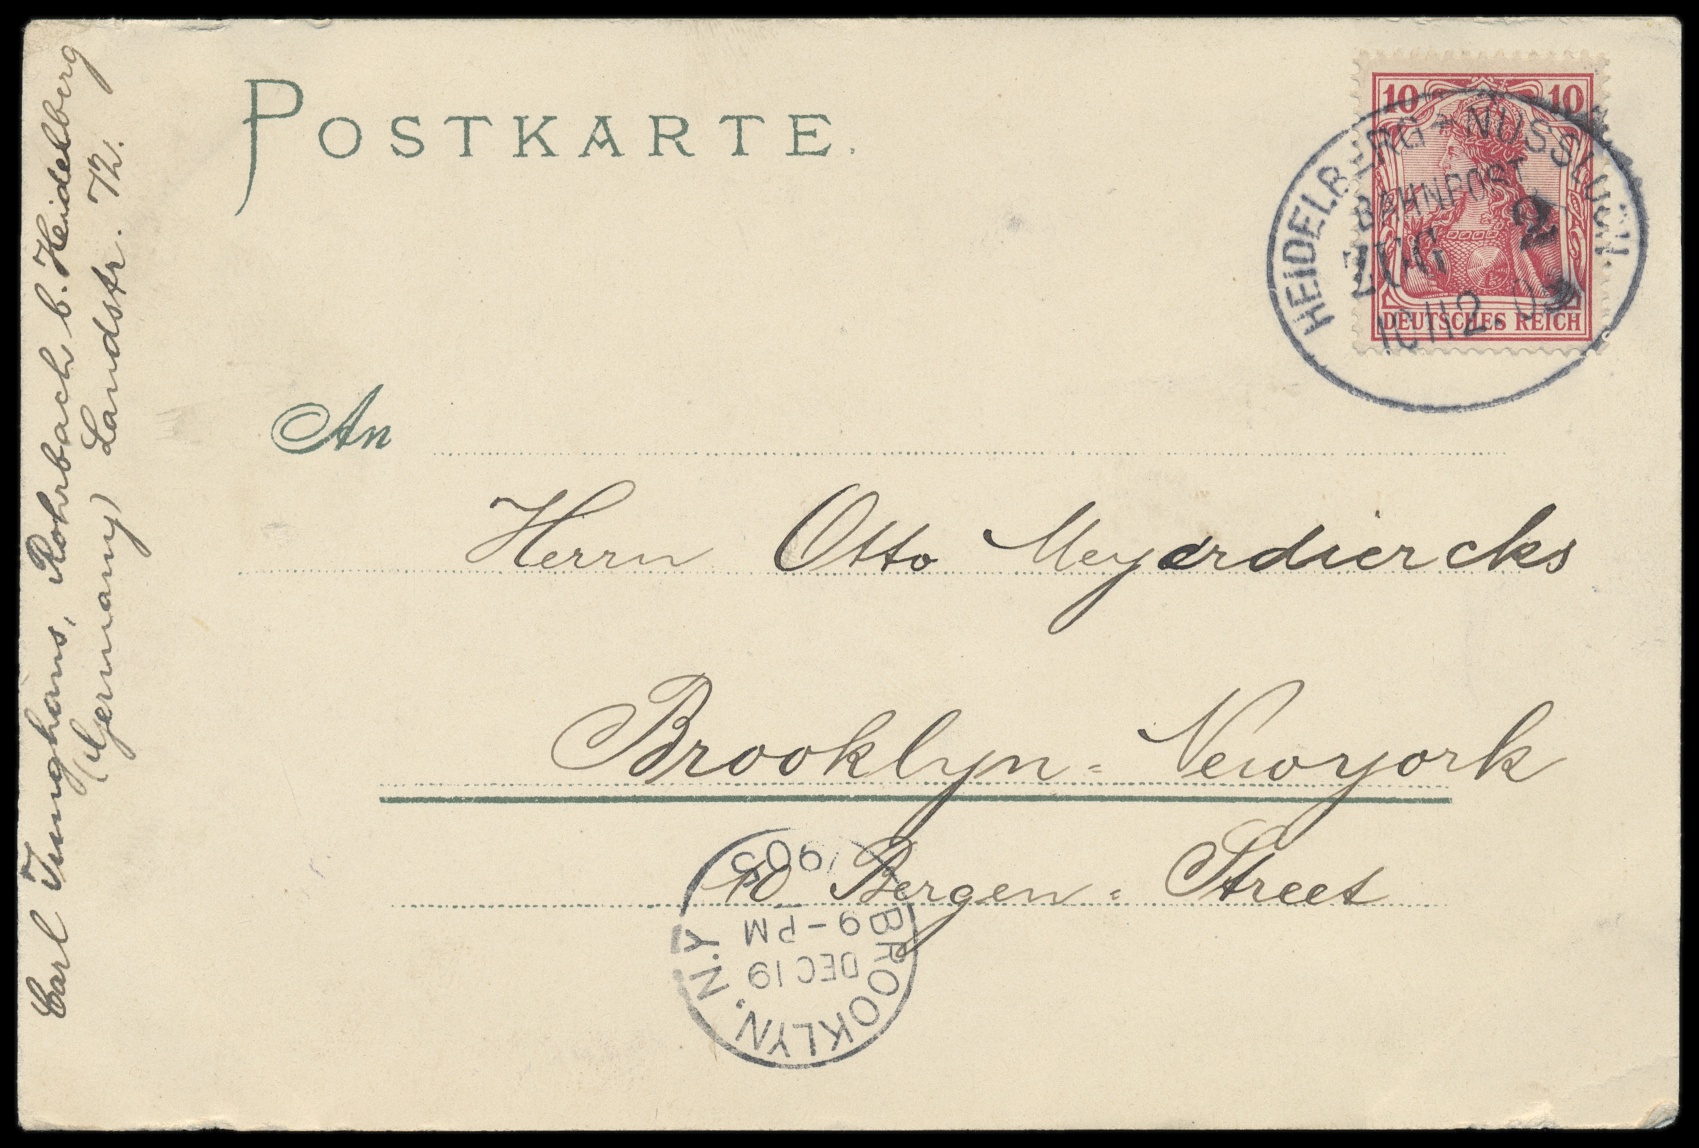 POSTKARTE.
10 10
DEUTSCHES REICH
HEIDELBERG * NUSSLOCH.
BAHNPOST
ZUG 2
10 12.05
An
Herrn Otto Meyerdiercks
Brooklyn = Newyork
10 Bergen = Street
BROOKLYN, N.Y.
DEC 19
9-PM
1905
Carl Junghans, Rohrbach b. Heidelberg
(Germany) Landstr. 72.